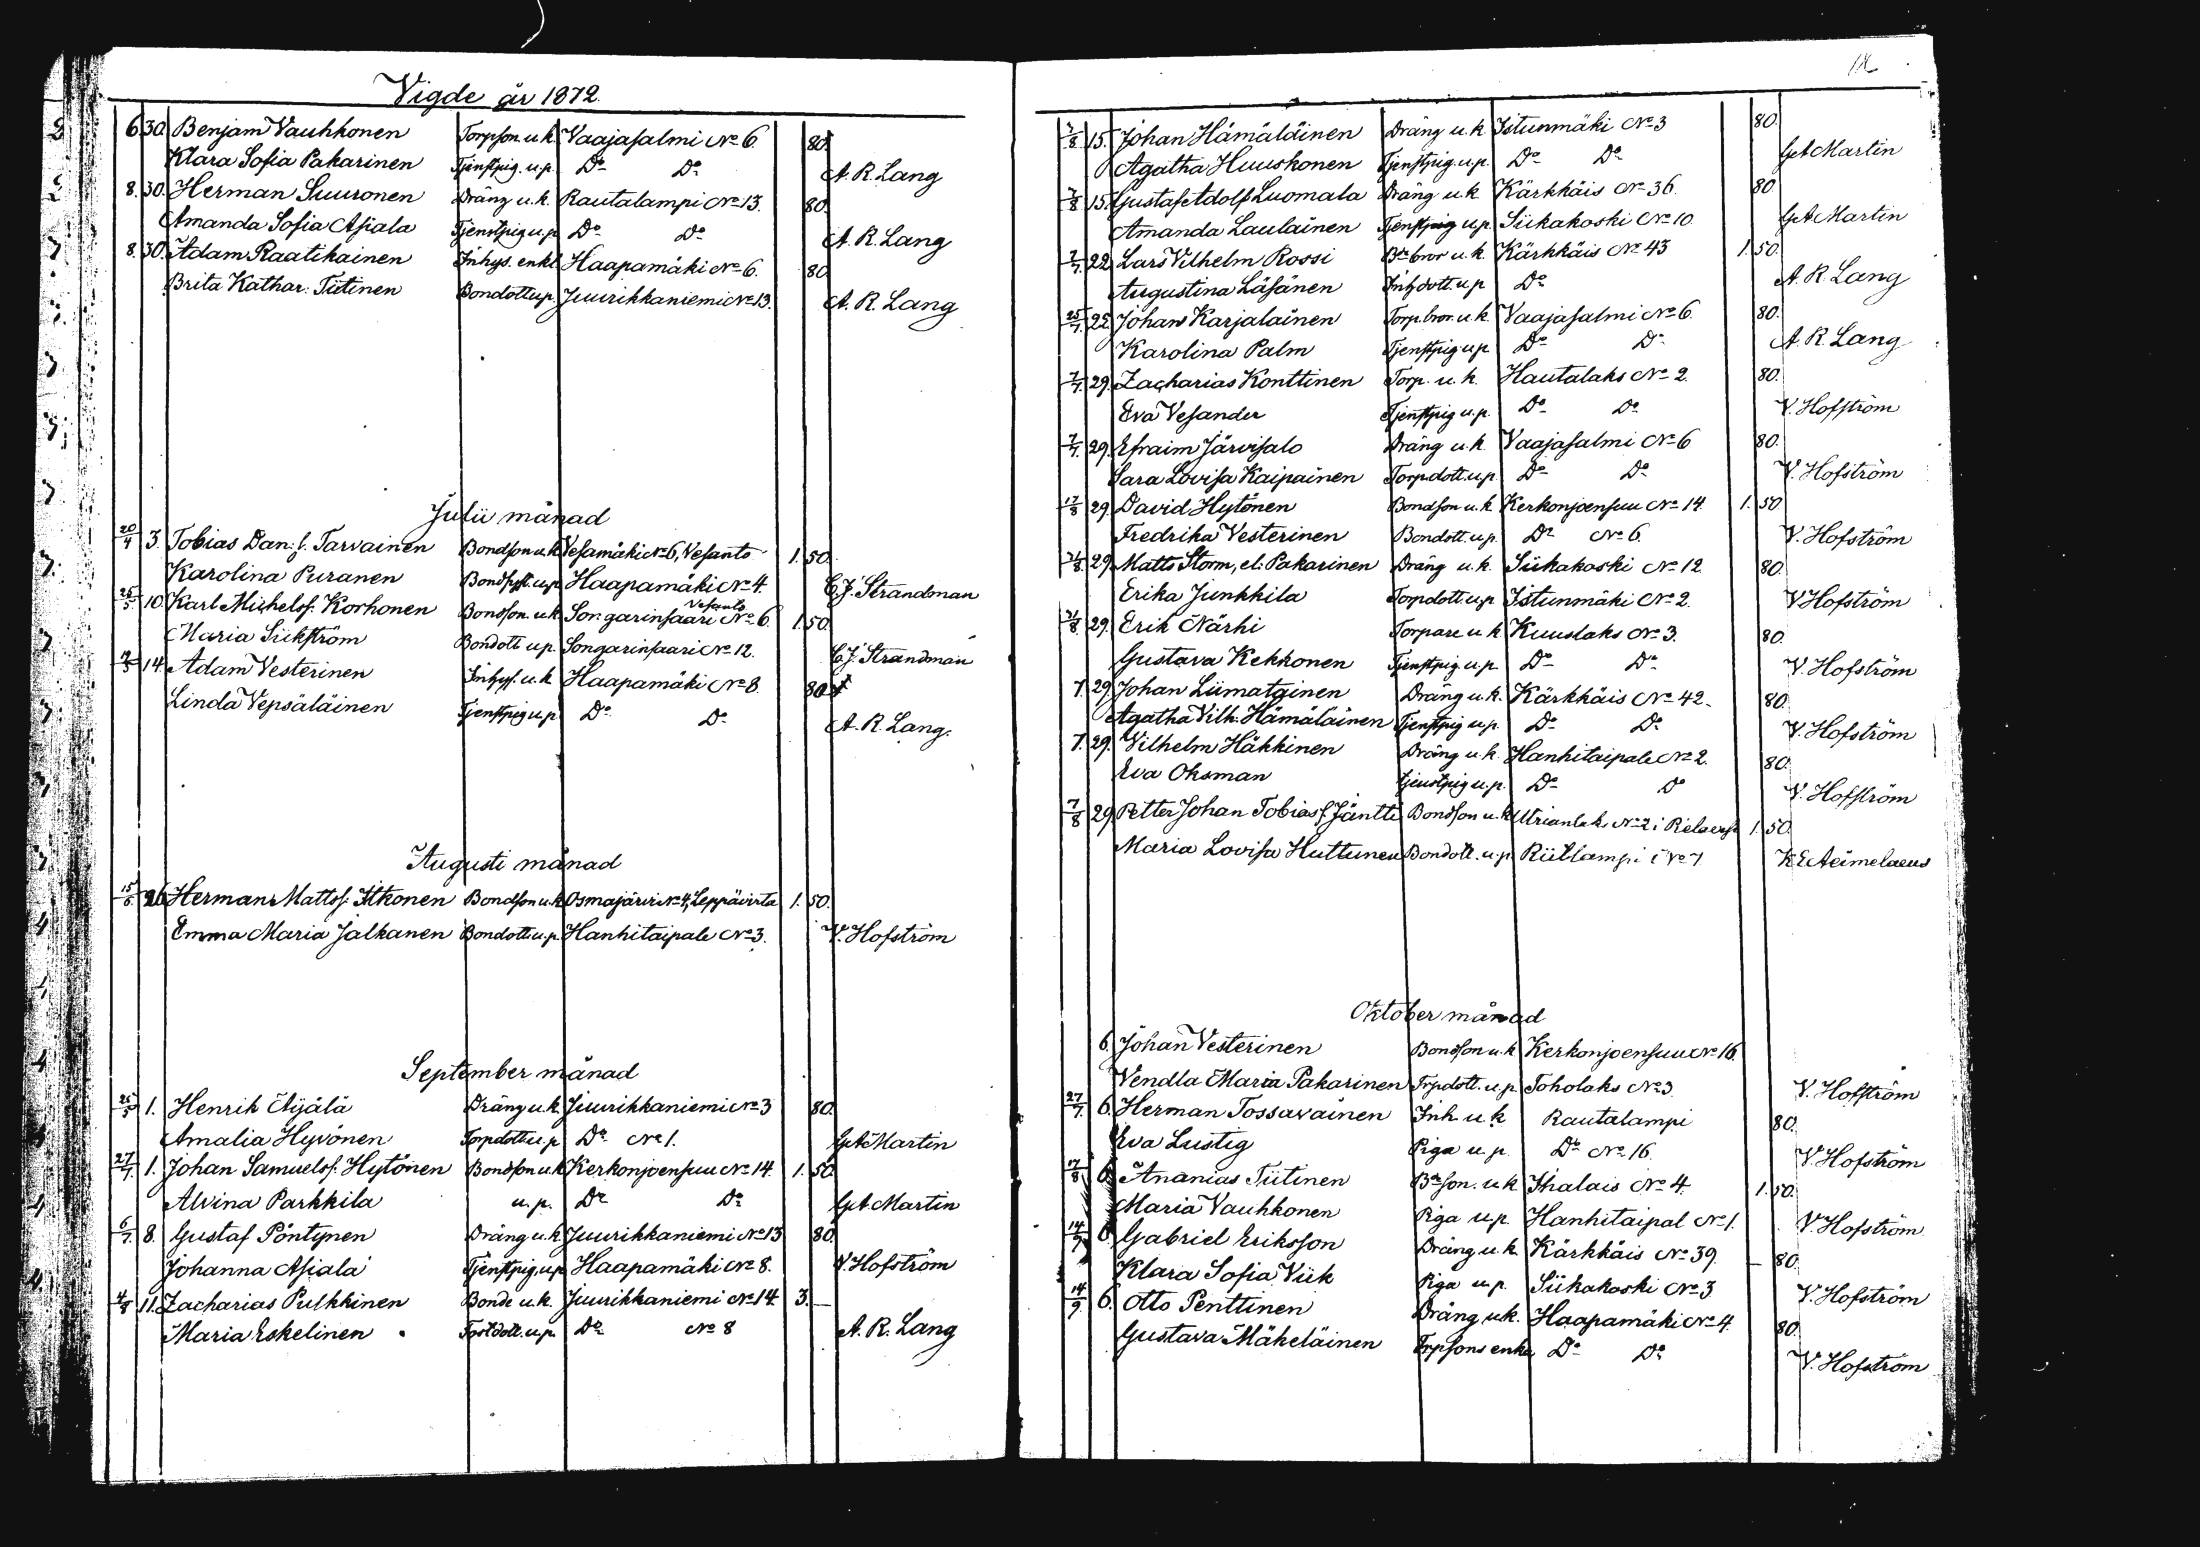 Vigde år 1872.
6. 30. Benjam Vauhkonen Torpson u.k. Vaajasalmi No 6 80.
Klara Sofia Pakarinen Tjenstpig. u.p. Do Do A. R. Lang
8. 30. Herman Suuronen Dräng u.k. Rautalampi No 13. 80.
Amanda Sofia Asiala Tjenstpig u.p. Do Do A. R. Lang
8. 30. Adam Raatikainen Inhys. enkl. Haapamäki No 6. 80.
Brita Kathar: Tiitinen Bondott u.p. Juurikkaniemi No 13. A. R. Lang
Julii månad
20/4 3. Tobias Dan: s. Tarvainen Bondson u.k. Vesamäki No 6, Vesanto 1. 50.
Karolina Puranen Bondsyst. u.p. Haapamäki No 4. C.J. Strandman
25/5 10. Karl Michelss. Korhonen Bondson. u.k. Songarinsaari No 6 Vesanto 1. 50.
Maria Siikström Bondott u.p. Songarinsaari No 12. C.J. Strandman
14. Adam Vesterinen Inhys. u.k. Haapamäki No 8. 80.
Linda Vepsäläinen Tjenstpig u.p. Do Do A. R. Lang.
Augusti månad
15/6 26. Herman Mattss. Itkonen Bondson u.k. Osmajärvi No 4, Leppävirta 1. 50.
Emma Maria Jalkanen Bondott u.p. Hanhitaipale No 3. V. Hofström
September månad
25/5 1. Henrik Äijälä Dräng u.k. Juurikkaniemi No 3 80.
Amalia Hyvönen Torpdott u.p. Do No 1. G.A. Martin
27/7. 1. Johan Samuelss. Hytönen Bondson u.k. Kerkonjoensuu No 14. 1. 50.
Alvina Parkkila u.p. Do Do G.A. Martin
6/7. 8. Gustaf Pöntynen Dräng u.k. Juurikkaniemi No 13 80.
Johanna Asiala Tjenstpig. u.p. Haapamäki No 8. V. Hofström
4/8 11. Zacharias Pulkkinen Bonde u.k. Juurikkaniemi No 14. 3. –
Maria Eskelinen Torpdott. u.p. Do No 8 A. R. Lang
7/8. 15. Johan Hämäläinen Dräng u.k. Istunmäki No 3 80.
Agatha Huuskonen Tjenstpig. u.p. Do Do G.A. Martin
7/8 15. Gustaf Adolf Luomala Dräng u.k. Kärkkäis No 36. 80
Amanda Laulainen Tjenstpig u.p. Siikakoski No 10. G.A. Martin
7/7. 22. Lars Vilhelm Rossi Bde bror u.k. Kärkkäis No 43 1. 50.
Augustina Läsänen Inhdott. u.p Do A. R. Lang
25/7. 22. Johan Karjalainen Torp. bror. u.k. Vaajasalmi No 6. 80.
Karolina Palm Tjenstpig u.p Do Do A. R. Lang
7/7. 29. Zacharias Konttinen Torp. u.k. Hautalaks No 2. 80.
Eva Vesander Tjenstpig u.p. Do Do V. Hofström
7/7. 29. Efraim Järvisalo Dräng u.k. Vaajasalmi No 6 80.
Sara Lovisa Kaipainen Torpdott. u.p Do Do V. Hofström
17/8 29. David Hytönen Bondson u.k. Kerkonjoensuu No 14. 1. 50
Fredrika Vesterinen Bondott. u.p. Do No 6. V. Hofström
21/8. 29. Matts Storm, el. Pakarinen Dräng u.k. Siikakoski No 12. 80.
Erika Junkkila Torpdott u.p Istunmäki No 2. V Hofström
21/8. 29. Erik Närhi Torpare u k Kuuslaks No 3. 80.
Gustava Kekkonen Tjenstpig u.p Do Do V. Hofström
7. 29. Johan Liimatainen Dräng u.k. Kärkkäis No 42. 80.
Agatha Vilh: Hämäläinen Tjenstpig u.p. Do Do V. Hofström
7. 29. Vilhelm Häkkinen Dräng u.k. Hanhitaipale No 2. 80.
Eva Oksman Tjenstpig u.p. Do D V. Hofström
7/8 29 Petter Johan Tobiass. Jäntti Bondson u.k. No 2 i 1. 50.
Maria Lovisa Huttunen Bondott. u.p Riitlampi No 7 K E Aeimelaeus
Oktober månad
6. Johan Vesterinen Bondson u.k Kerkonjoensuu No 16.
Vendla Maria Pakarinen Trpdott. u.p Toholaks No 3. V. Hofström
27/7. 6. Herman Tossavainen Inh u.k Rautalampi 80.
Eva Lustig Piga u.p. Do No 16. V Hofström
17/8 6. Ananias Tiitinen Bdeson. u.k Ihalais No 4. 1. 50.
Maria Vauhkonen Piga u.p. Hanhitaipal No 1. V Hofström
14/9 6. Gabriel Eriksson Dräng u.k Kärkkäis No 39. – 80.
Klara Sofia Viik Piga u.p. Siikakoski No 3 V. Hofström
14/9 6. Otto Penttinen Dräng u.k. Haapamäki No 4. 80.
Gustava Mäkeläinen Trpsons enka Do Do V. Hofström